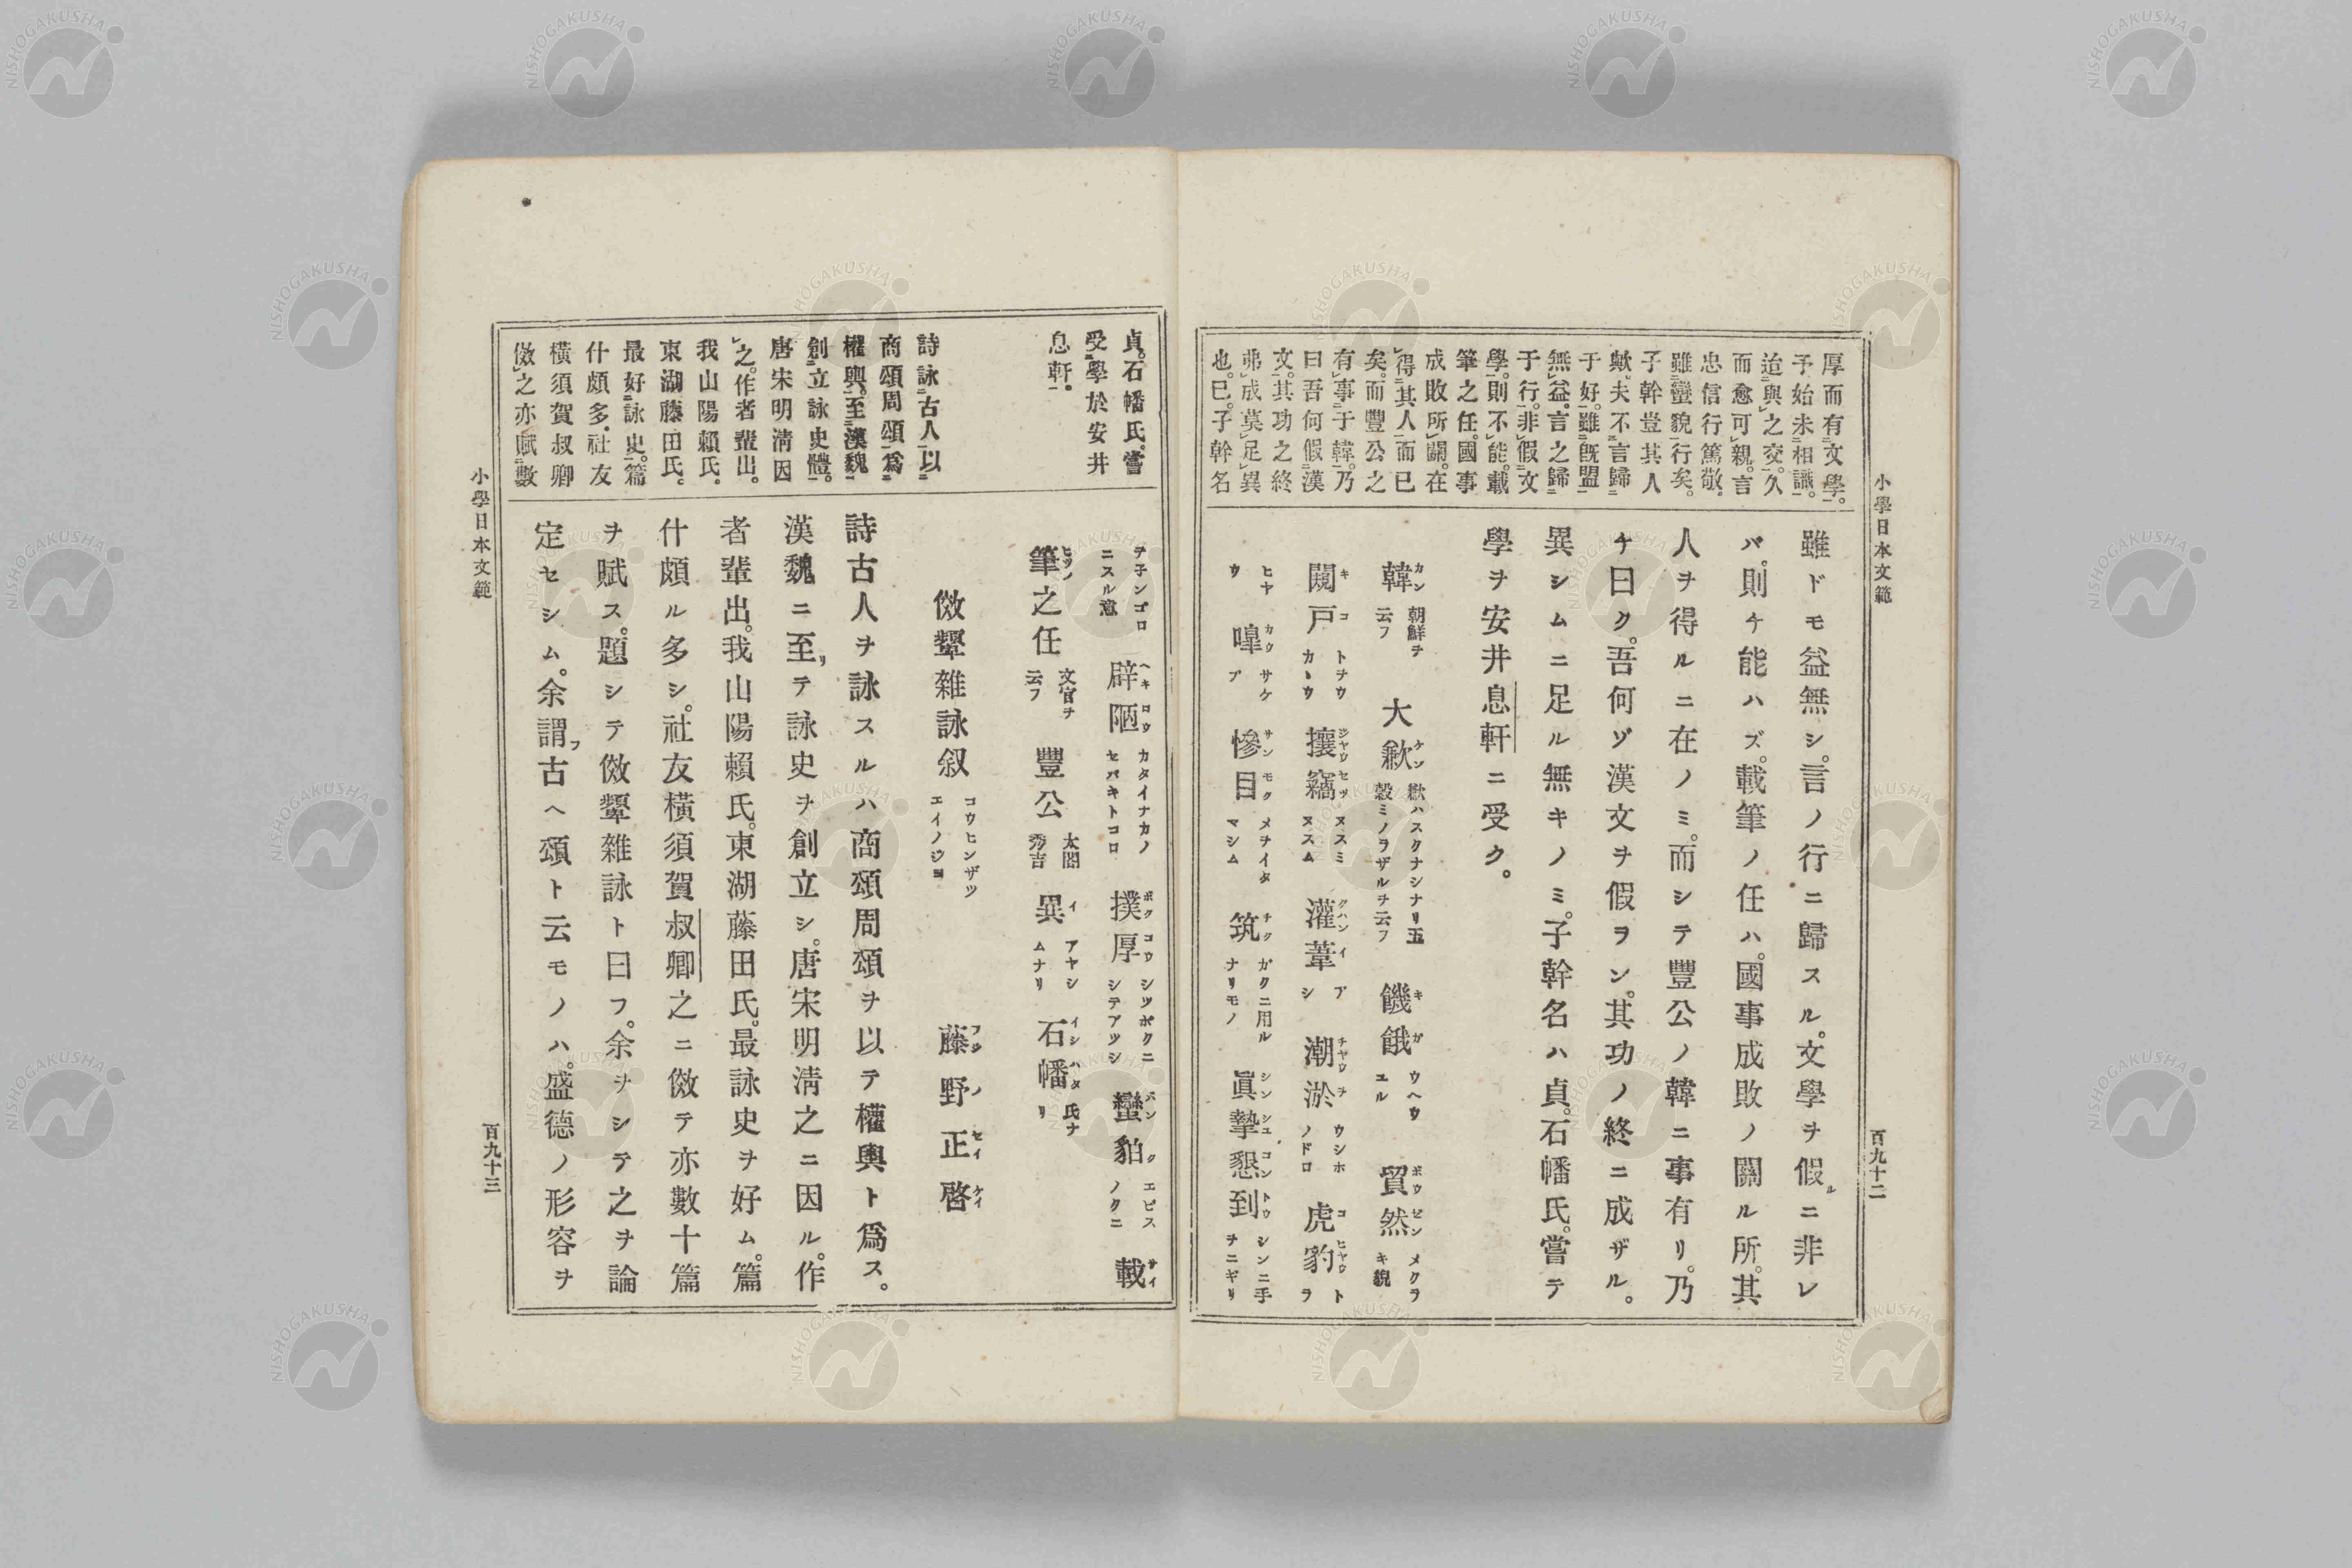 小學日本文範
百九十二
厚而有文學。
予始未相識。
迨與之交久
而愈可親。言
忠信行篤敬。
雖蠻貌行矣。
子幹豈其人
歟。夫不言歸
于好。雖既盟
無益。言之歸
于行。非假文
學。則不能。載
筆之任。國事
成敗所關。在
得其人而已
矣。而豐公之
有事于韓。乃
曰吾何假漢
文。其功之終
弗成莫足異
也。已。子幹名
雖ドモ益無シ。言ノ行ニ歸スル。文學ヲ假ルニ非レ
バ。則チ能ハズ。載筆ノ任ハ。國事成敗ノ關ル所。其
人ヲ得ルニ在ノミ。而シテ豐公ノ韓ニ事有リ。乃
チ曰ク。吾何ゾ漢文ヲ假ヲン。其功ノ終ニ成ザル。
異シムニ足ル無キノミ。子幹名ハ貞。石幡氏。嘗テ
學ヲ安井息軒ニ受ク。
韓 カン 朝鮮ヲ云フ 大歉 ケン 歉ハスクナシナリ五穀ミノヲザルヲ云フ 饑餓 キガ ウヘウユル 貿然 ボウゼン メクラキ貌
闚戸 キコ トヲウカヽウ 攘竊 ジヤウセツ ヌスミヌスム 灌葦 クハンイ アシ 潮淤 チヤウヲ ウシホノドロ 虎豹 コヒヤウ トラ
ヒヤウ 嘷 カウ サケブ 慘目 サンモク メヲイタマシム 筑 チク ガクニ用ルナリモノ 眞摯懇到 シンシユコントウ シンニ手ヲニギリ
貞。石幡氏。嘗
受學於安井
息軒。
詩詠古人以
商頌周頌爲
權輿。至漢魏
創立詠史體。
唐宋明淸因
之。作者輩出。
我山陽賴氏。
東湖藤田氏。
最好詠史。篇
什頗多。社友
橫須賀叔卿
倣之亦賦數
テ子ンゴロニスル意 辟陋 ヘキロウ カタイナカノセバキトコロ 撲厚 ボクコウ シツボクニシテアツシ 蠻貊 バンク エビスノクニ 載 サイ
筆之任 ヒツノ 文官ヲ云フ 豐公 太閤秀吉 異 イ アヤシムナリ 石幡 イシハタ 氏ナリ
倣顰雜詠叙 コウヒンザツエイノジヨ 藤野正啓 フジノセイケイ
詩古人ヲ詠スルハ商頌周頌ヲ以テ權輿ト爲ス。
漢魏ニ至リテ詠史ヲ創立シ。唐宋明淸之ニ因ル。作
者輩出。我山陽賴氏。東湖藤田氏。最詠史ヲ好ム。篇
什頗ル多シ。社友橫須賀叔卿之ニ倣テ亦數十篇
ヲ賦ス。題シテ倣顰雜詠ト曰フ。余ヲシテ之ヲ論
定セシム。余謂フ古ヘ頌ト云モノハ。盛德ノ形容ヲ
小學日本文範
百九十三